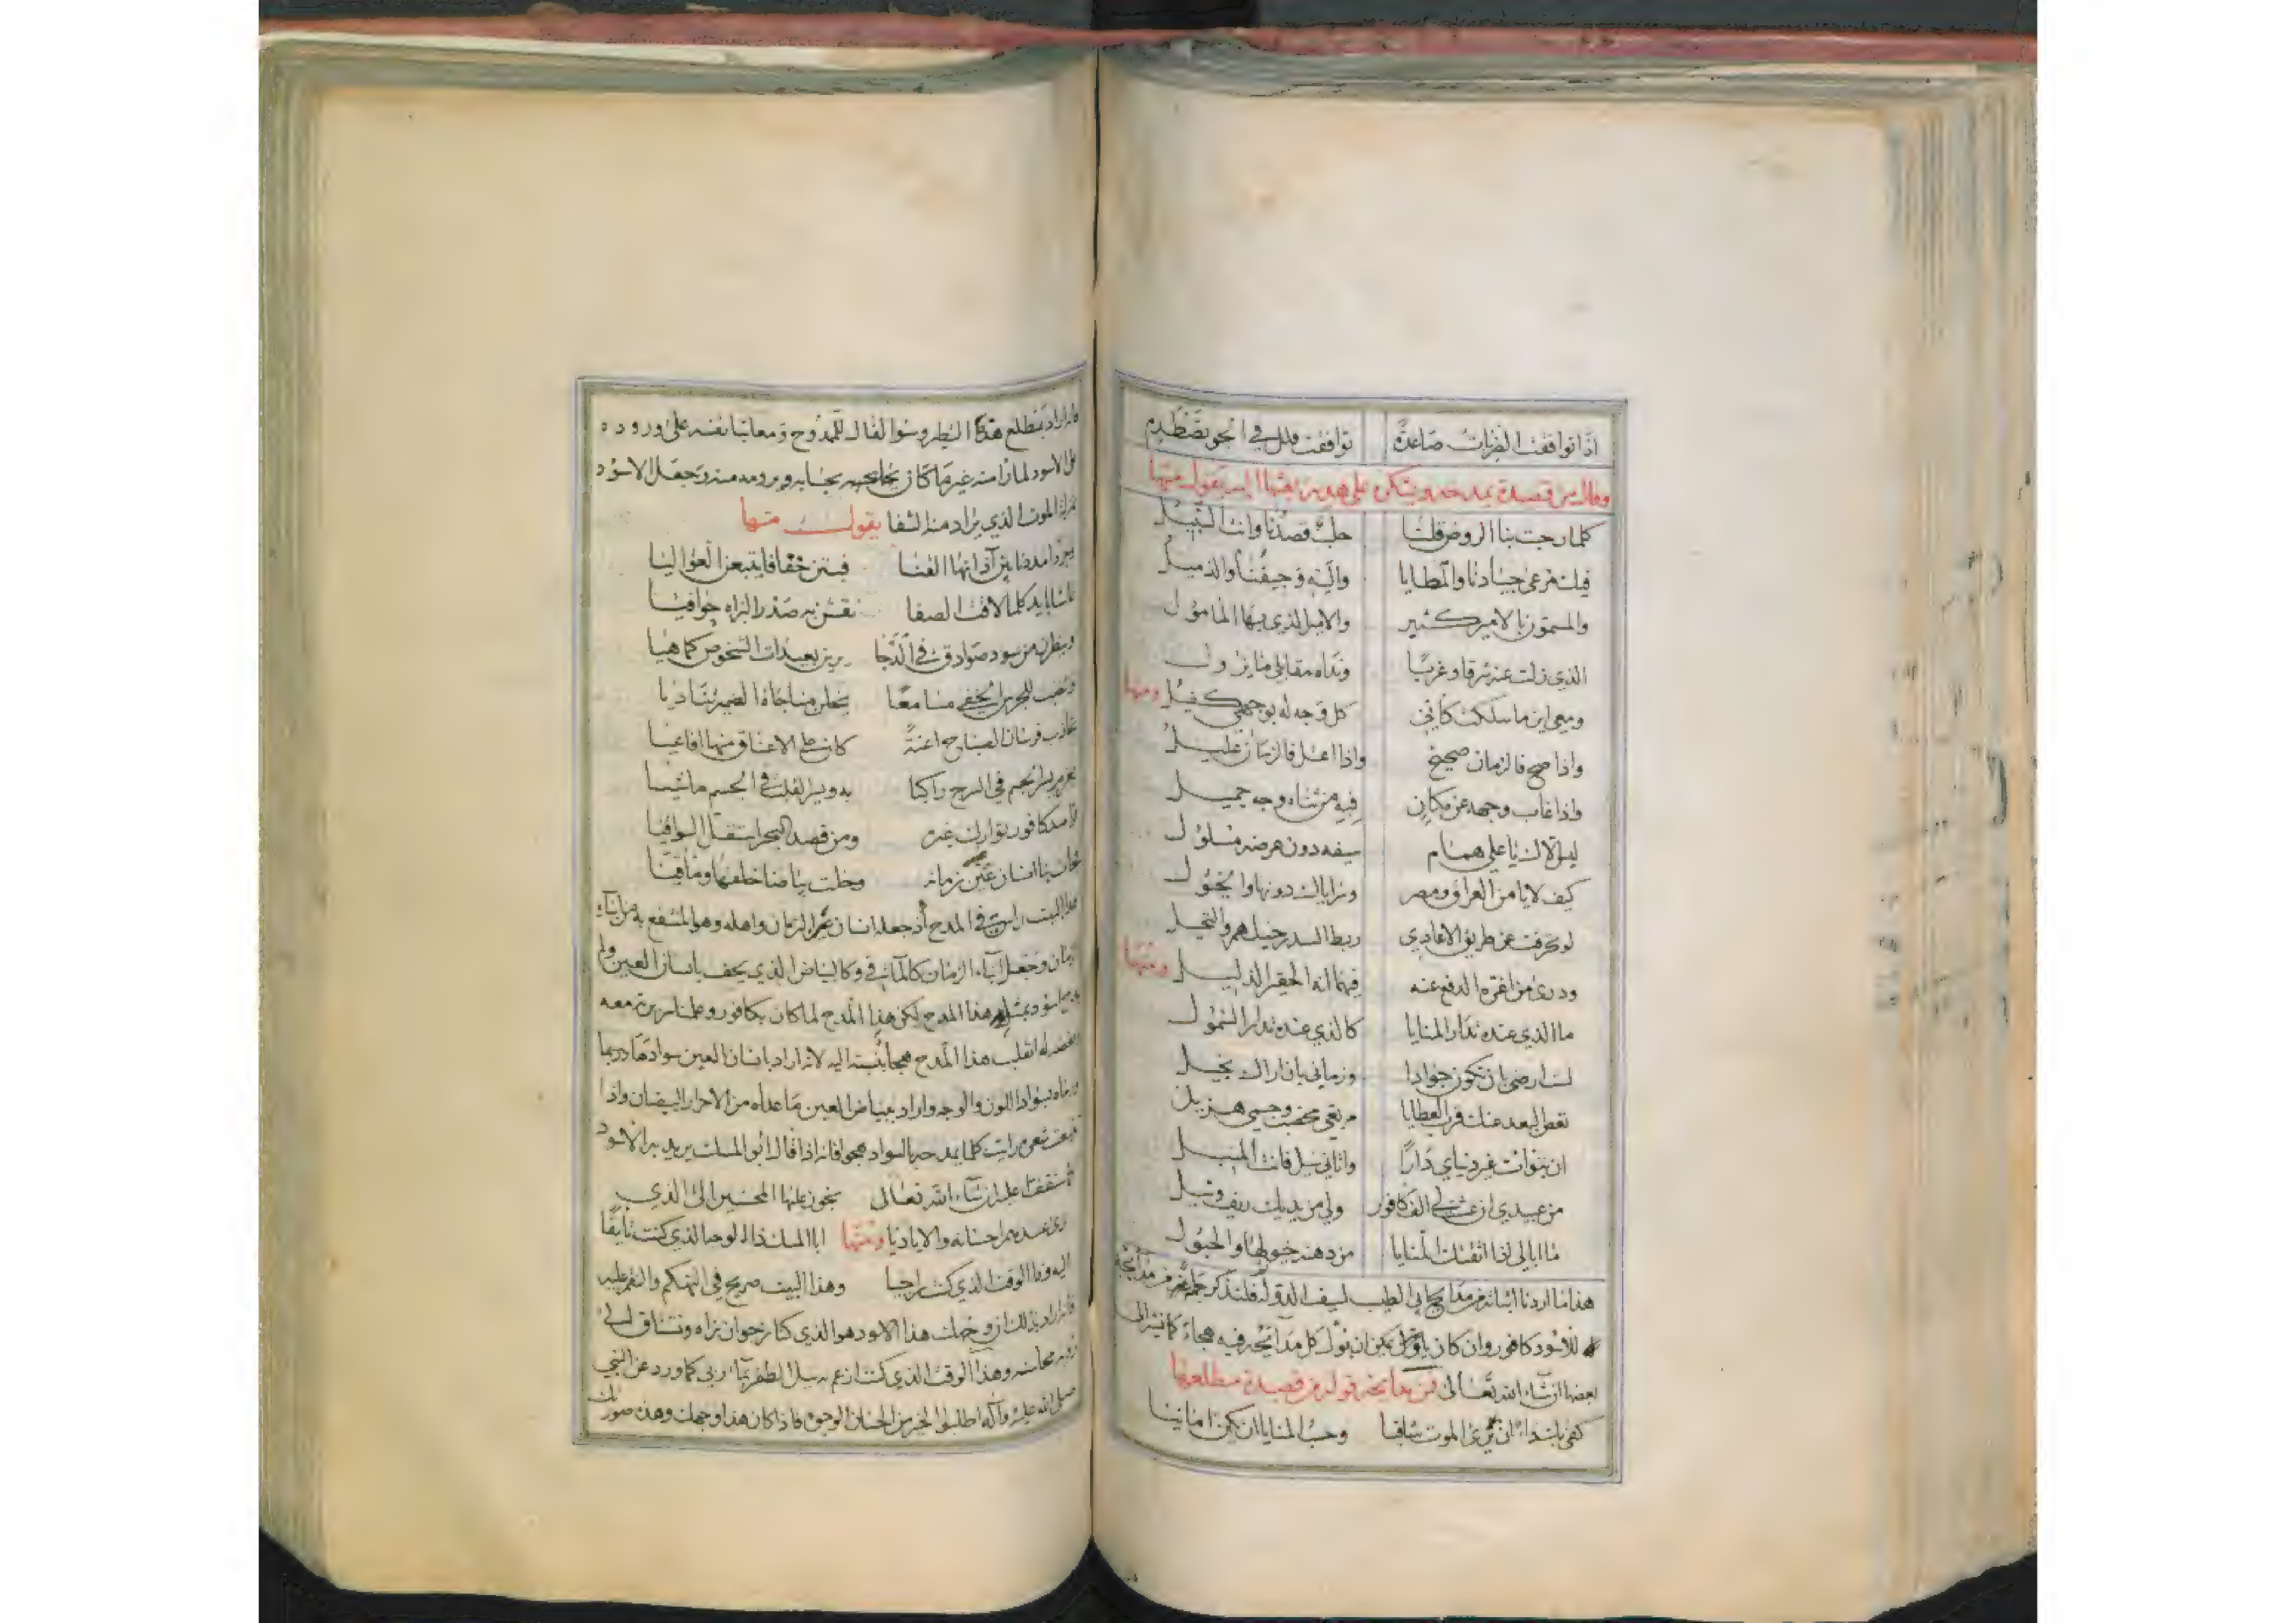 اذا توافقت الضربات صاعدة توافقت قلل في الجو تصطدم
وقال من قصيدة يمدحه ويشكره على هدية بعثها اليه يقول منها
كلما رحبت بنا الروض قلنا حلب قصدنا وانت السبيل
فيك مرعى جيادنا والمطايا واليه وجيفنا والذميل
والمسمون بالامير كثير والامير الذي بها المامول
الذي زلت عنه شرقا وغربا ونداه مقابلي ما يزول
ومعي اين ما سلكت كاني كل وجه له بوجهي كفيل ومنها
واذا صح فالزمان صحيح واذا اعتل فالزمان عليل
واذا غاب وجهه عن مكان فيه من ثناه وجه جميل
ليس الاك يا علي همام سيفه دون عرضه مسلول
كيف لا يامن العراق ومصر وسراياك دونها والخيول
لو تحرفت عن طريق الاعادي ربط السدر خيلهم والنخيل
ودرى من اعزه الدفع عنه فيهما انه الحقير الذليل ومنها
ما الذي عنده تدار المنايا كالذي عنده تدار الشمول
لست ارضى بان تكون جوادا وزماني بان اراك بخيل
نغص البعد عنك قرب العطايا مرتعي مخصب وجسمي هزيل
ان تبوات غير دنياي دارا واتاني نيل فانت المنيل
من عبيدي ان عشت لي الف كافور ولي من يديك ريف ونيل
ما ابالي اذا اتقتك المنايا من دهته خبولها والحبول
هذا ما اردنا اثباته من مدايح ابي الطيب لسيف الدولة فلنذكر جملة من مدايحه
للاسود كافور وان كان يمكن ان نؤل كل مدايحه فيه هجاء كما نشير الى
بعضها ان شاء الله تعالى فمن مدايحه قوله من قصيدة مطلعها
كفى بك داء ان ترى الموت شافيا وحسب المنايا ان يكن امانيا
فانه اراد بمطلع هذه البطر وسوا لقال للممدوح ومعاتبا نفسه على وروده
الاسود لما راى منه غير ما كان بجنابه ويرومه منه وجعل الاسود
الموت الذي يراد منه الشفا يقول منها
وجردا مددنا بين آذانها القنا فبتن خفافا يتبعن العواليا
تماشا بايد كلما لاقت الصفا نقشن به صدر البزاة حوافيا
وينظرن من سود صوادق في الدجا يرين بعيدات الشخوص كما هيا
وتنصب للجرس الخفي مسامعا يخلن مناجاة الضمير تناديا
تجاذب فرسان الصباح اعنة كان على الاعناق منها افاعيا
بعزم يسير الجسم في السرج راكبا به ويسير القلب في الجسم ماشيا
قواصد كافور توارك غيره ومن قصد البحر استقل السواقيا
فجاءت بنا انسان عين زمانه وخلت بياضا خلفها وماقيا
هذا البيت راس في المدح اذ جعله انسان عين الزمان واهله وهو المنتفع به من ابناء
الزمان وجعل ابناء الزمان كالماقي وكالبياض الذي يحف بانسان العين ولم
يمدح اسود بمثل هذا المدح لكن هذا المدح لما كان بكافور وعلمنا سريرته معه
انقلب هذا المدح هجا بنسبته اليه لانه اراد بانسان العين سوادها وربما
بسواد اللون والوجه واراد ببياض العين ما عداه من الاحرار البيضان واذا
شعره رايت كلما يمدحه بالسواد هجوا فانه اذا قال ابو المسك يريد به الاسود
ستقف عليه ان شاء الله تعالى نجوز عليها المحسنين الى الذي
نرى عندهم احسانه والاياديا ومنها ابا المسك ذا الوجه الذي كنت تايقا
اليه وذا الوقت الذي كنت راجيا وهذا البيت صريح في التهكم والسخر عليه
فانه اراد بذلك ان وجهك هذا الاسود هو الذي كنا نرجو ان نراه ونشتاق الى
محاسنه وهذا الوقت الذي كنت ازعم به نيل الظفر بمآربي كما ورد عن النبي
صلى الله عليه وآله اطلبوا الخير من الحسان الوجوه فاذا كان هذا وجهك وهذه صورتك